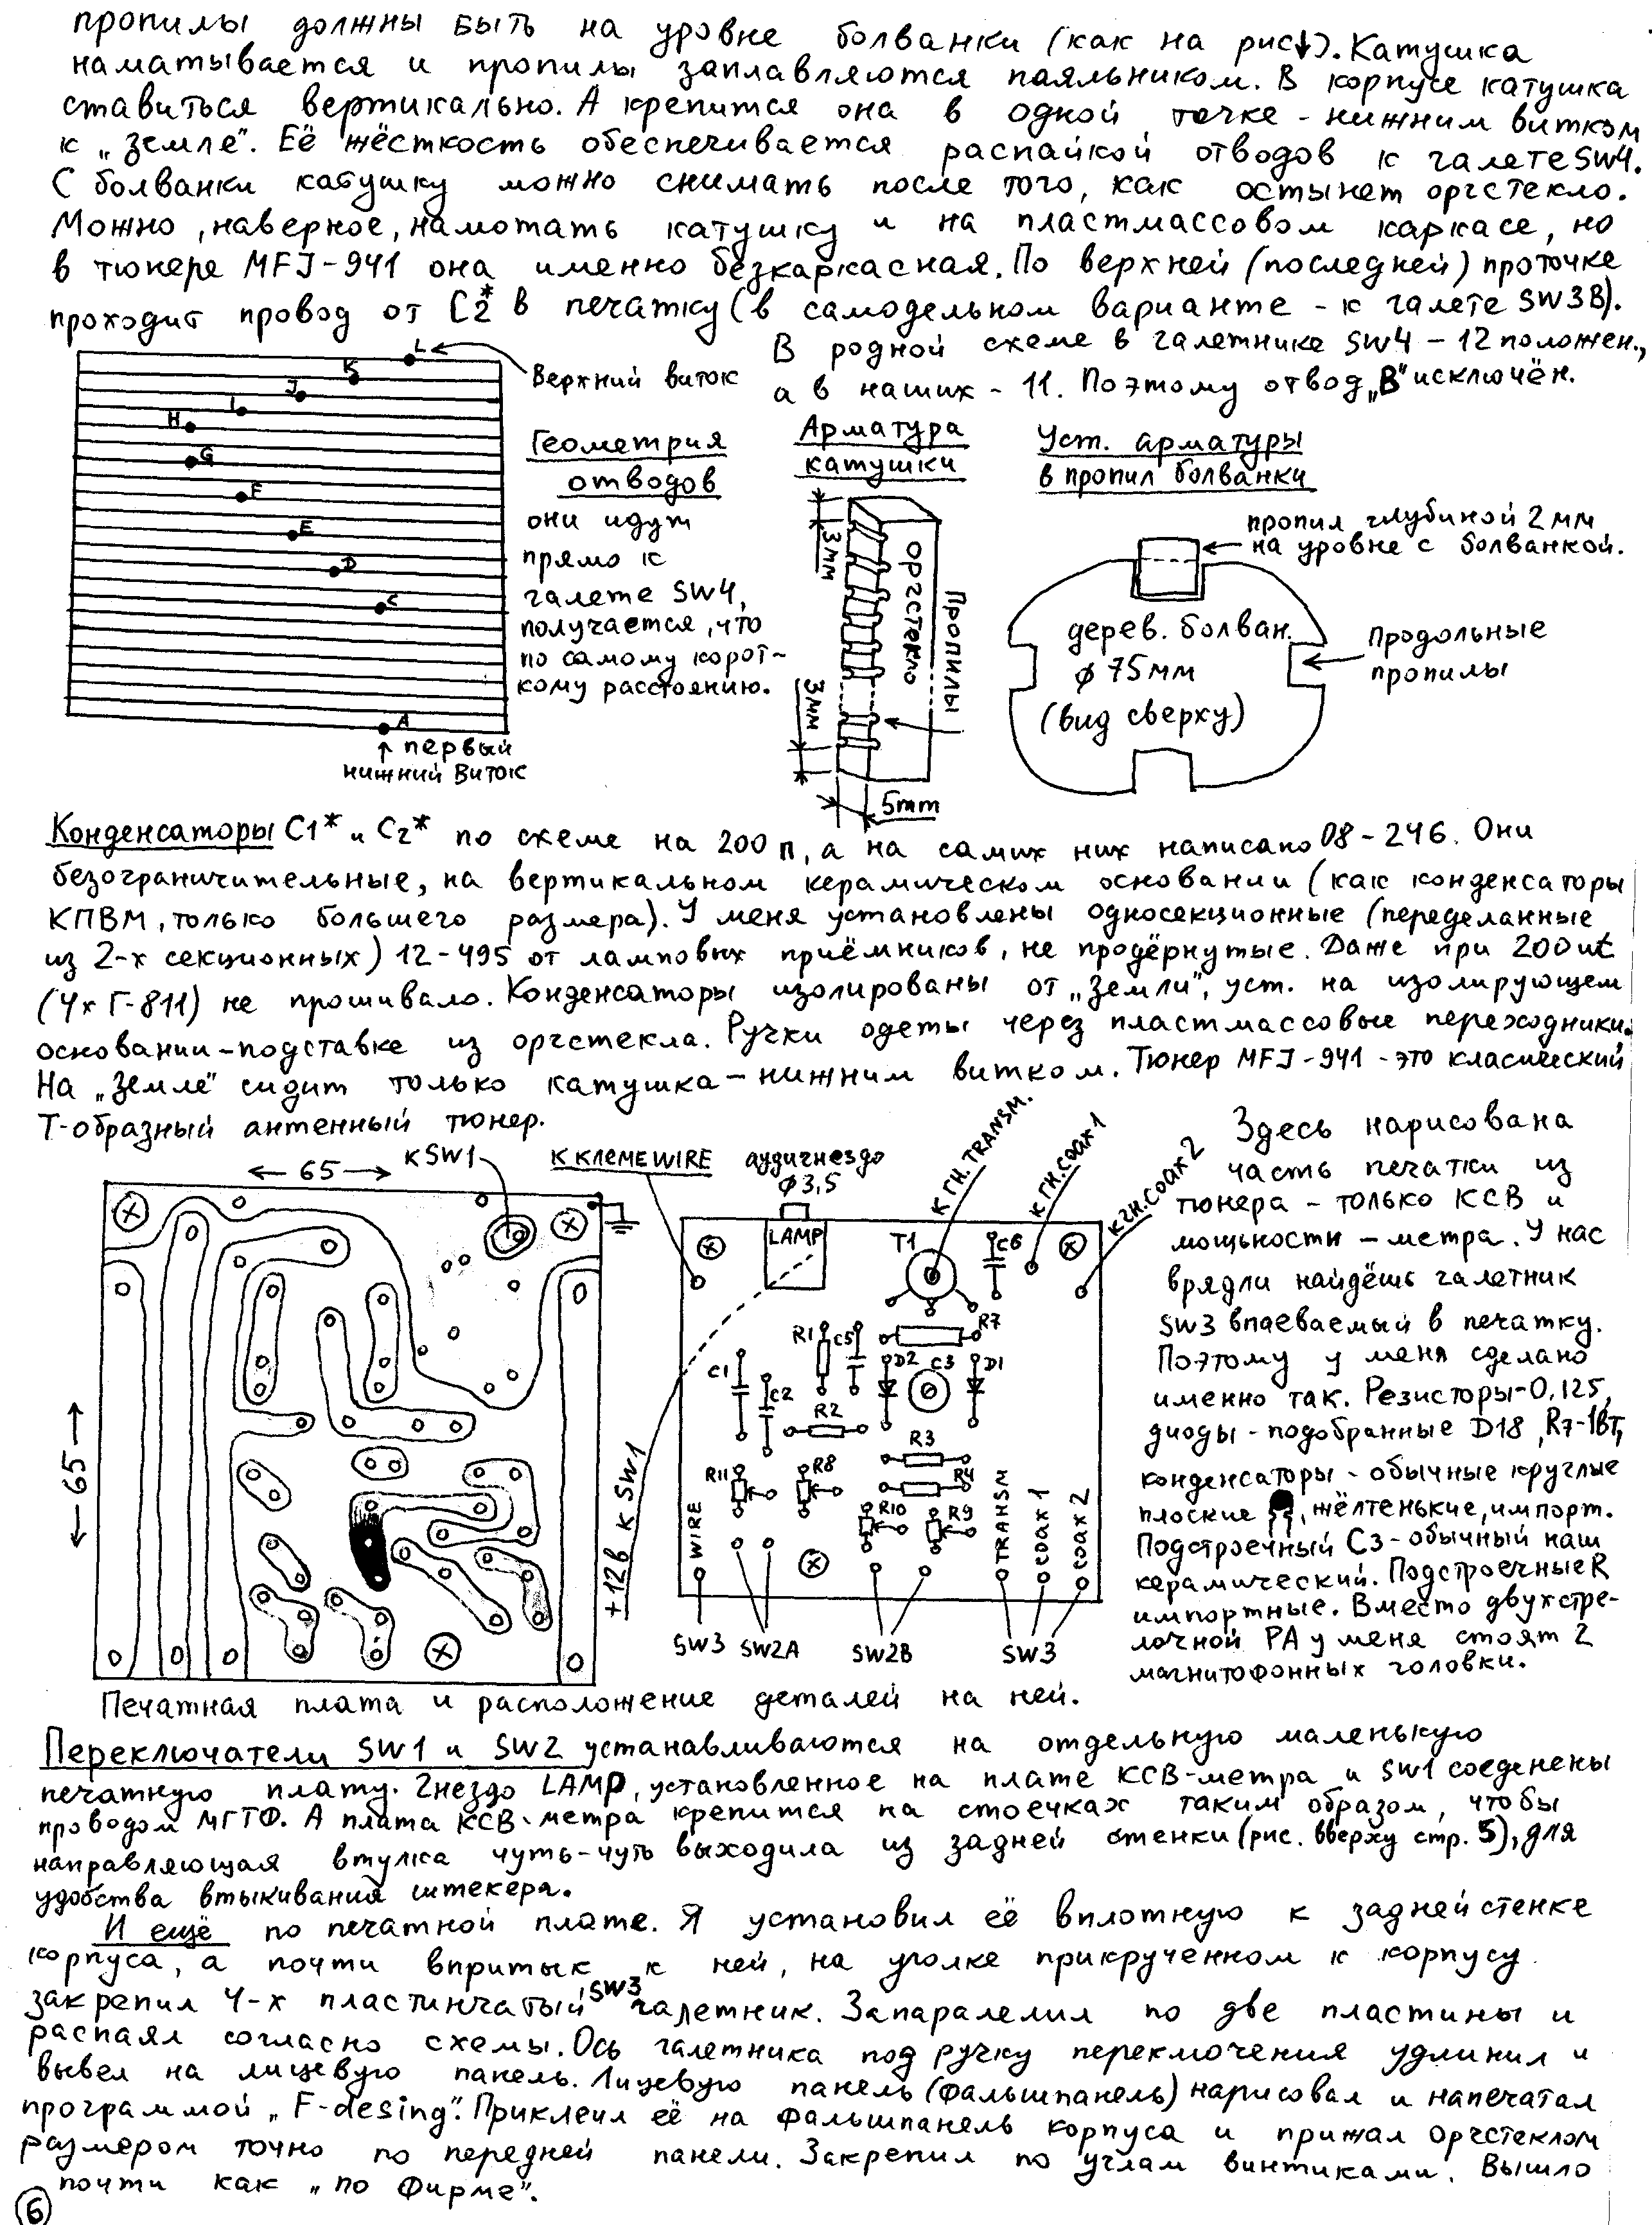 пропилы должны быть на уровне болванки (как на рис↓). Катушка
наматывается и пропилы заплавляются паяльником. В корпусе катушка
ставиться вертикально. А крепится она в одной точке - нижним витком
к „земле". Её жёсткость обеспечивается распайкой отводов к галете SW4.
С болванки катушку можно снимать после того, как остынет оргстекло.
Можно, наверное, намотать катушку и на пластмассовом каркасе, но
в тюнере MFJ-941 она именно безкаркасная. По верхней (последней) проточке
проходит провод от C2* в печатку (в самодельном варианте - к галете SW3B).
В родной схеме в галетнике SW4 - 12 положен.,
а в наших - 11. Поэтому отвод „В" исключён.
L
K
J
I
H
G
F
E
D
C
A
Верхний виток
↑ первый
нижний виток
Геометрия
отводов
они идут
прямо к
галете SW4,
получается, что
по самому корот-
кому расстоянию.
Арматура
катушки
3мм
оргстекло
Пропилы
3мм
5mm
Уст. арматуры
в пропил болванки
пропил глубиной 2мм
на уровне с болванкой.
дерев. болван.
ϕ 75мм
(вид сверху)
продольные
пропилы
Конденсаторы C1* и C2* по схеме на 200п, а на самих них написано 08-246. Они
безограничительные, на вертикальном керамическом основании (как конденсаторы
КПВМ, только большего размера). У меня установлены односекционные (переделанные
из 2-х секционных) 12-495 от ламповых приёмников, не продёрнутые. Даже при 200wt
(4х Г-811) не прошивало. Конденсаторы изолированы от „земли", уст. на изолирующем
основании-подставке из оргстекла. Ручки одеты через пластмассовые переходники.
На „земле" сидит только катушка - нижним витком. Тюнер MFJ-941 - это класический
Т-образный антенный тюнер.
← 65 →
к SW1
65
к клеме WIRE
аудигнездо
ϕ3,5
к гн. TRANSM.
к гн. coax 1
к гн. coax 2
LAMP
T1
C6
R7
R1
C5
D2
C3
D1
C1
C2
R2
R3
R4
R11
R8
R10
R9
WIRE
TRANSM
coax 1
coax 2
+12в к SW1
SW3
SW2A
SW2B
SW3
Здесь нарисована
часть печатки из
тюнера - только КСВ и
мощьности - метра. У нас
врядли найдёшь галетник
SW3 впаеваемый в печатку.
Поэтому у меня сделано
именно так. Резисторы-0,125,
диоды - подобранные D18, R7-1Вт,
конденсаторы - обычные круглые
плоские, жёлтенькие, импорт.
Подстроечный C3 - обычный наш
керамический. Подстроечные R
импортные. Вместо двухстре-
лочной РА у меня стоят 2
магнитофонных головки.
Печатная плата и расположение деталей на ней.
Переключатели SW1 и SW2 устанавливаются на отдельную маленькую
печатную плату. Гнездо LAMP, установленное на плате КСВ-метра и SW1 соеденены
проводом МГТФ. А плата КСВ-метра крепится на стоечках таким образом, чтобы
направляющая втулка чуть-чуть выходила из задней стенки (рис. вверху стр. 5), для
удобства втыкивания штекера.
И ещё по печатной плате. Я установил её вплотную к задней стенке
корпуса, а почти впритык к ней, на уголке прикрученном к корпусу
закрепил 4-х пластинчатый SW3 галетник. Запаралелил по две пластины и
распаял согласно схемы. Ось галетника под ручку переключения удлинил и
вывел на лицевую панель. Лицевую панель (фальшпанель) нарисовал и напечатал
программой „F-desing". Приклеил её на фальшпанель корпуса и прижал оргстеклом
размером точно по передней панели. Закрепил по углам винтиками. Вышло
почти как „по фирме".
6